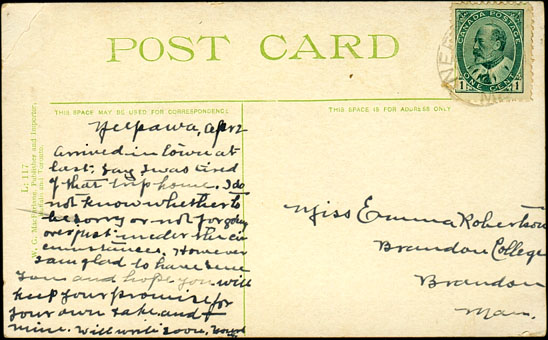 POST CARD
CANADA POSTAGE
1 ONE CENT 1
NEE
THIS SPACE MAY BE USED FOR CORRESPONDENCE
THIS SPACE IS FOR ADDRESS ONLY
L: 117
W. G. MacFarlane, Publisher and Importer,
Toronto.
Neepawa, Apr 2
Arrived in town at
last. Say I was tired
of that trip home. I do
not know whether to
be sorry or not for going
over just under the cir
cumstances. However
I am glad to have seen
you and hope you will
keep your promise for
your own sake and
mine. Will write soon.
Miss Emma Robertson
Brandon College
Brandon
Man.